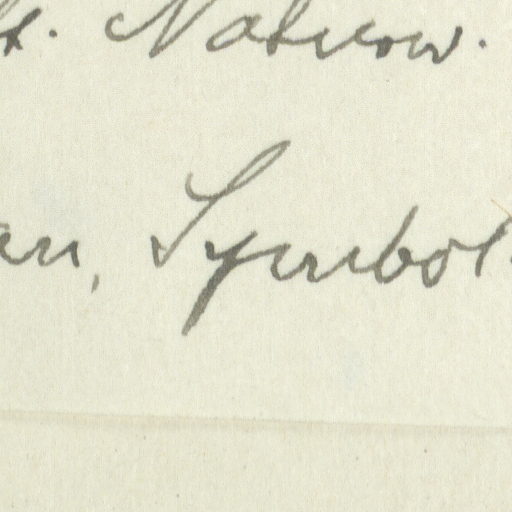 t. Natrow.
an, Symbol